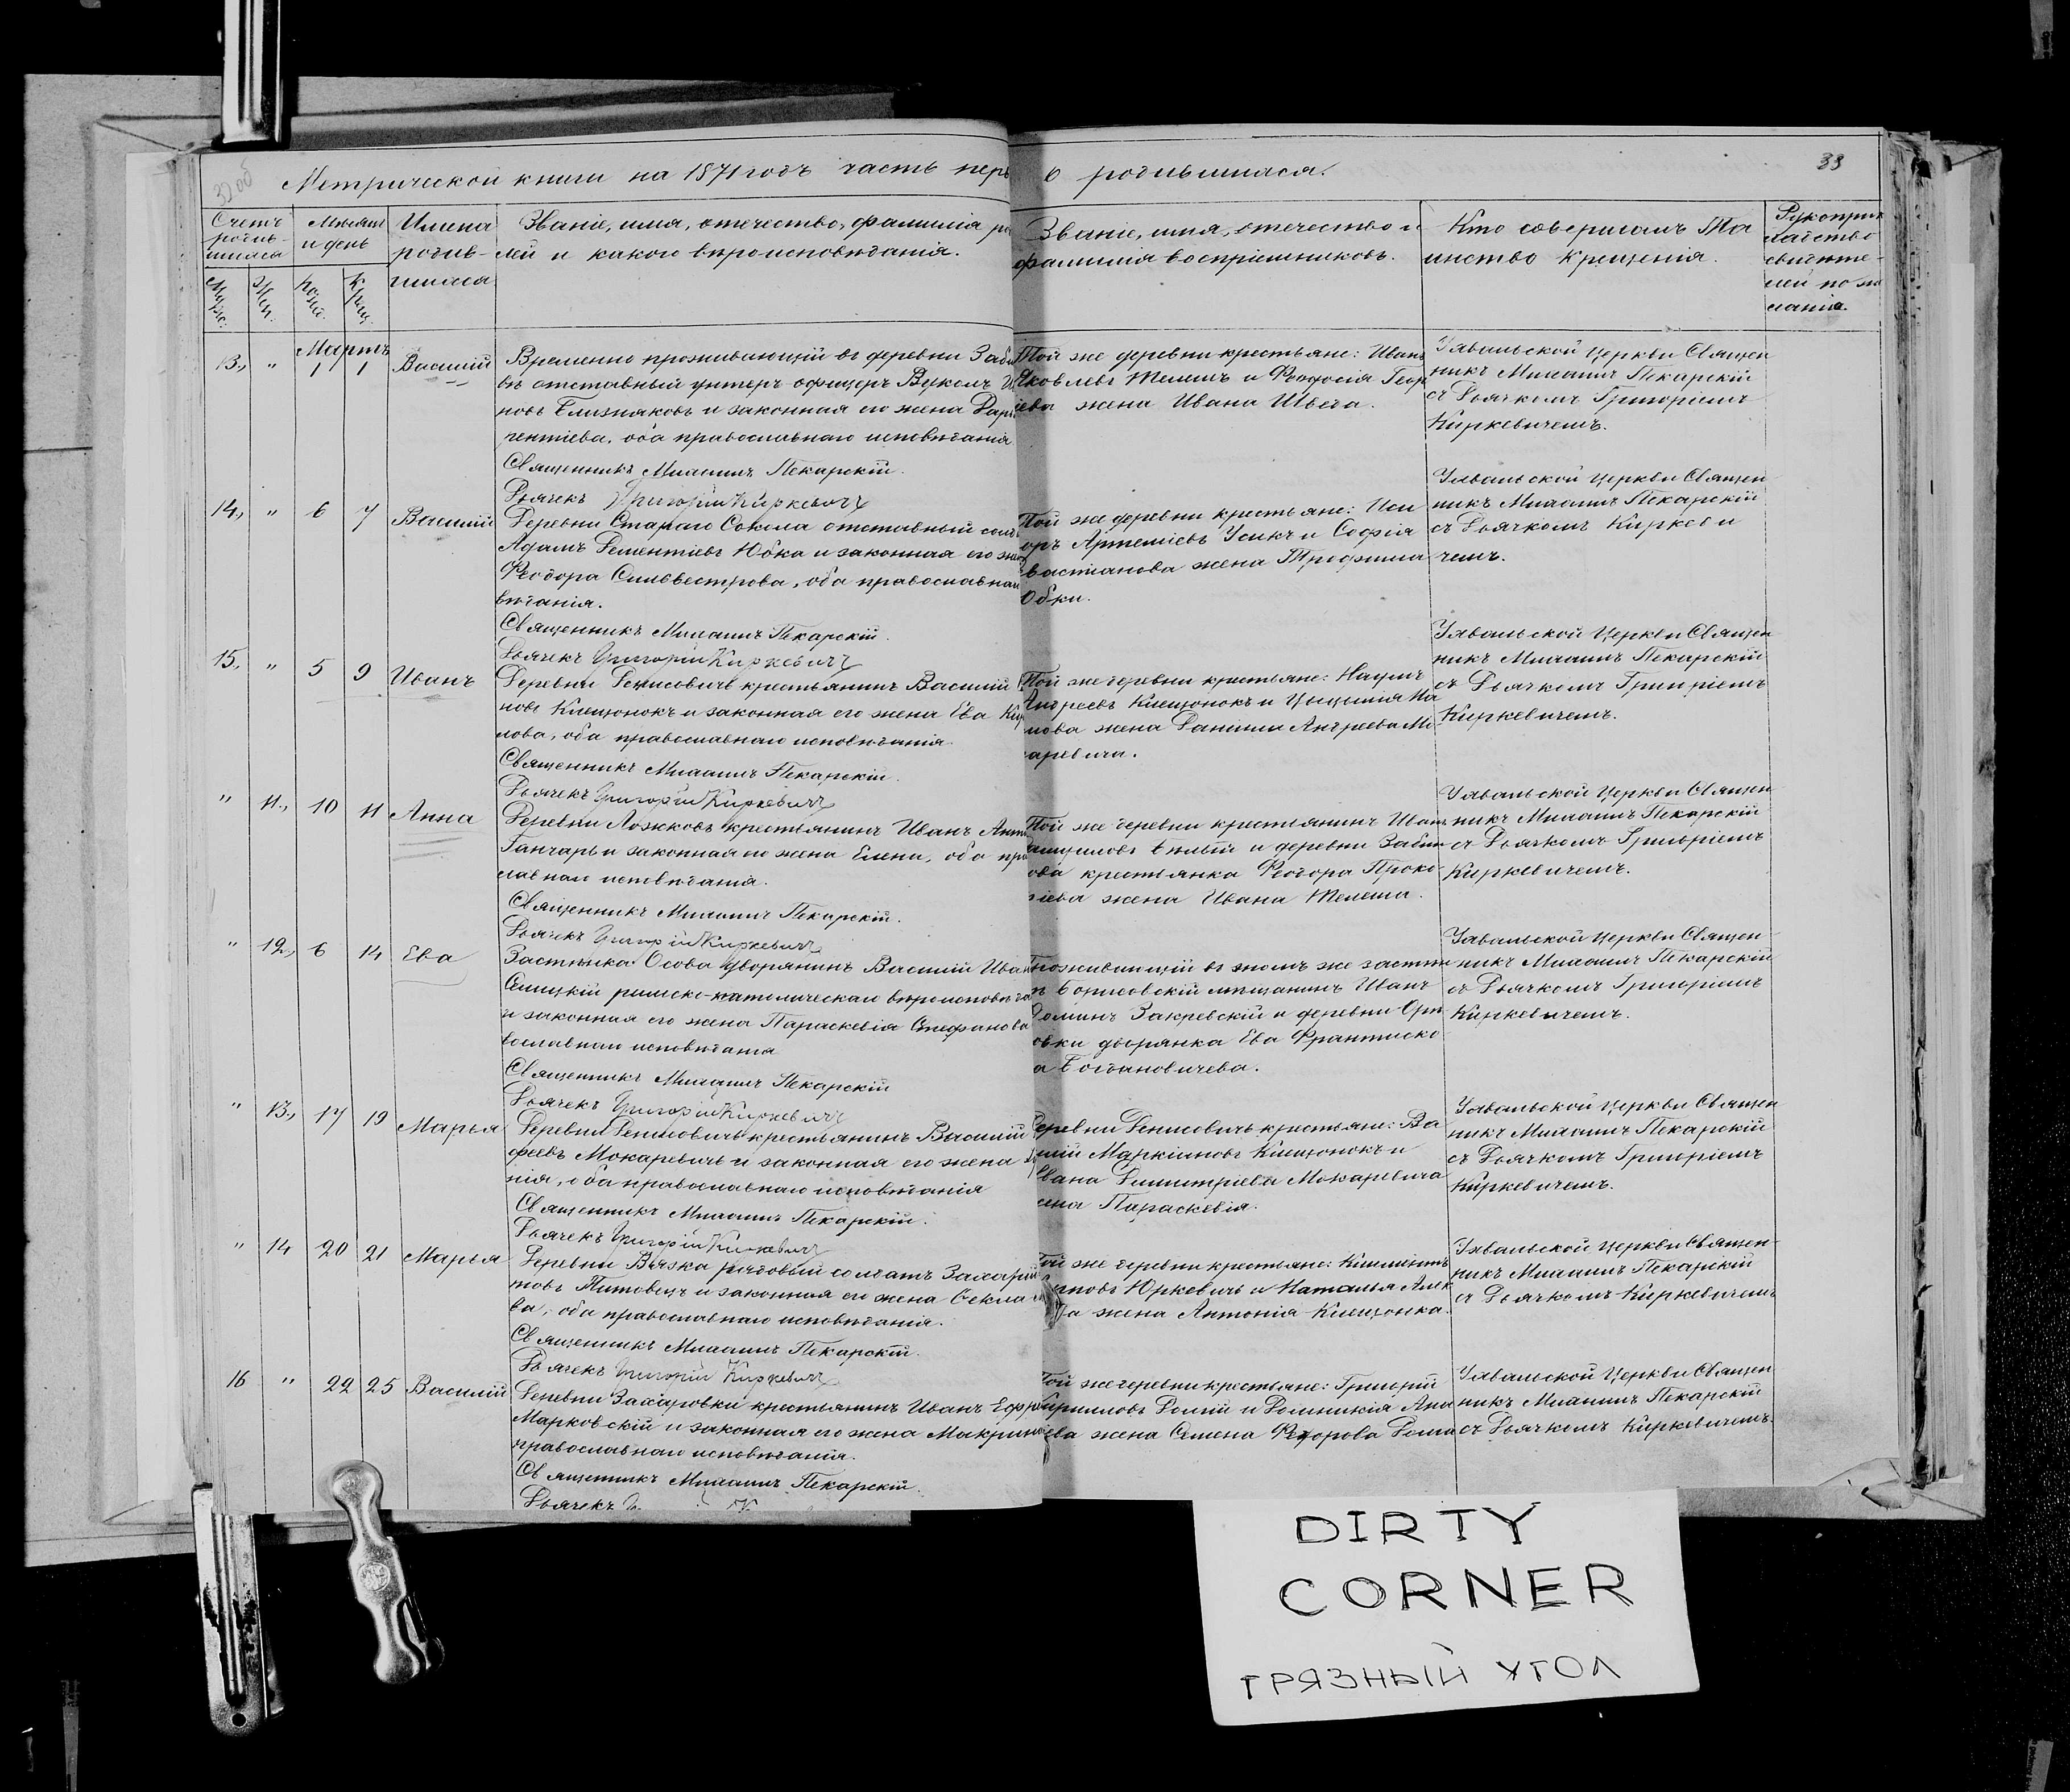 32 об
Метрической книги на 1871 годъ часть перв
о родившихся.
33
Счетъ родив-шихся
Мѣсяцъ и день
Имена родив-шихся
Званіе, имя, отечество, фамилія ро
лей и какого вѣроисповѣданія.
Званіе, имя, отечество и
фамилія воспріемниковъ.
Кто совершалъ Та
инство Крещенія.
Рукопри
кладство
свидѣте-
лей по же
ланію.
Мартъ
13, " 1 1 Василій
Временно проживающій въ деревни Заби
въ отставный унтеръ-офицеръ Вуколъ
новъ Близняковъ и законная его жена Дарі
рентіева, оба православнаго исповѣданія
Священникъ Михаилъ Пекарскій.
Дьячекъ Григорій Киркевичъ
Той же деревни крестьяне: Иванъ
Яковлевъ Телешъ и Феодосія Геор
іева жена Ивана Швеса.
Улвальской Церкви Священ
никъ Михаилъ Пекарскій
съ Дьячкомъ Григоріемъ
Киркевичемъ.
14, " 6 7 Василій
Деревни Стараго Сокола отставный солд
Адамъ Дементіевъ Юбка и законная его жена
Феодора Сильвестрова, оба православнаго
вѣданія.
Священникъ Михаилъ Пекарскій.
Дьячекъ Григорій Киркевичъ
Той же деревни крестьяне: Иси
оръ Артемьевъ Усикъ и Софія
вастіанова жена Трофима
Юбки.
Улвальской Церкви Священ
никъ Михаилъ Пекарскій
съ Дьячкомъ Киркеви
чемъ.
15, " 5 9 Иванъ
Деревни Денисовичъ крестьянинъ Василій
новъ Клещонокъ и законная его жена Ева
лова, оба православнаго исповѣданія
Священникъ Михаилъ Пекарскій.
Дьячекъ Григорій Киркевичъ
Той же деревни крестьяне: Наумъ
Андреевъ Клещонокъ и
лова жена Даніила Андреева Мо
каревича.
Улвальской Церкви Священ
никъ Михаилъ Пекарскій
съ Дьячкомъ Григоріемъ
Киркевичемъ.
" 11, 10 11 Анна
Деревни Ложковъ крестьянинъ Иванъ Анто
Ганчаръ и законная его жена Елена, оба пра
славнаго исповѣданія.
Священникъ Михаилъ Пекарскій.
Дьячекъ Григорій Киркевичъ
Той же деревни крестьянинъ Иванъ
Бѣлый и деревни Заби
ова крестьянка Феодора Проко
піева жена Ивана Телеша.
Улвальской Церкви Священ
никъ Михаилъ Пекарскій
съ Дьячкомъ Григоріемъ
Киркевичемъ.
" 12, 6 14 Ева
Застѣнка Осова дворянинъ Василій Иван
римско-католическаго вѣроисповѣда
и законная его жена Параскевія Стефанова
вославнаго исповѣданія
Священникъ Михаилъ Пекарскій
Дьячекъ Григорій Киркевичъ
Проживающій въ томъ же застѣн
ѣ Борисовскій мѣщанинъ Иванъ
Закревскій и деревни
овки дворянка Ева Францишко
а Богдановичева.
Улвальской Церкви Священ
никъ Михаилъ Пекарскій
съ Дьячкомъ Григоріемъ
Киркевичемъ.
" 13, 17 19 Марья
Деревни Денисовичъ крестьянинъ Василій
феевъ Мокаревичъ и законная его жена
нія, оба православнаго исповѣданія
Священникъ Михаилъ Пекарскій.
Дьячекъ Григорій Киркевичъ
Деревни Денисовичъ крестьяне: Ва
илій Маркіановъ Клещонокъ и
Ивана Димитріева Мокаревича
жена Параскевія.
Улвальской Церкви Священ
никъ Михаилъ Пекарскій
съ Дьячкомъ Григоріемъ
Киркевичемъ.
" 14 20 21 Марья
Деревни Вязка рядовый солдатъ Захарій
товъ Титовецъ и законная его жена Ѳекла
ва, оба православнаго исповѣданія.
Священникъ Михаилъ Пекарскій.
Дьячекъ Григорій Киркевичъ
Той же деревни крестьяне: Климентъ
Юркевичъ и Наталья Алек
жена Антонія Клещонка.
Улвальской Церкви Священ-
никъ Михаилъ Пекарскій
съ Дьячкомъ Киркевичемъ
16 " 22 25 Василій
Деревни Захаровки крестьянинъ Иванъ Ефр
Марковскій и законная его жена Макрина
православнаго исповѣданія.
Священникъ Михаилъ Пекарскій.
Дьячекъ
Той же деревни крестьяне: Григорій
Кирилловъ Долгій и Домникія
ева жена Семена Федорова
Улвальской Церкви Священ
никъ Михаилъ Пекарскій
съ Дьячкомъ Киркевичемъ.
DIRTY
CORNER
ГРЯЗНЫЙ УГОЛ